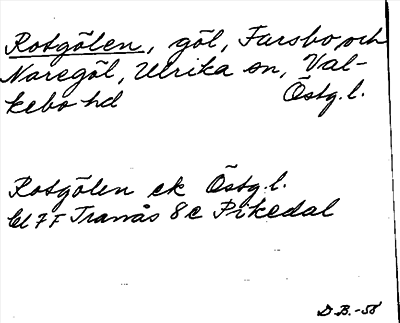 Rotgölen, göl, Farsbo och
Naregöl, Ulrika sn, Val-
kebo hd Östg.l.
Rotgölen ek Östg.l.
bl 7 F Tranås 8e Pikedal
D.B.-58